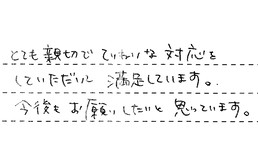 とても親切でていねいな対応を
していただいて 満足しています。
今後もお願いしたいと思っています。